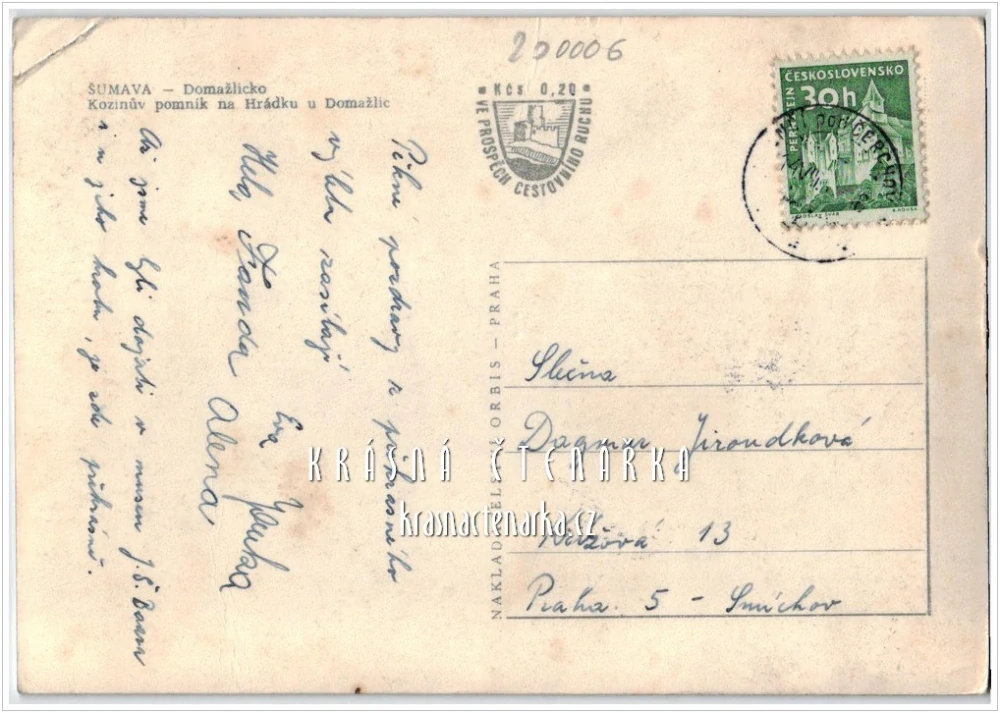 200006
ŠUMAVA – Domažlicko
Kozinův pomník na Hrádku u Domažlic
Kčs 0,20
VE PROSPĚCH CESTOVNÍHO RUCHU
ČESKOSLOVENSKO
30h
PERNŠTEJN
POD ČERCHOV
Pěkné pozdravy z překrásného
výletu zasílají
Eva
Hela, Franda Alena
My jsme byli dojati v museu J. Š. Baara
i u jeho hrobu, je zde překrásně.
NAKLADATELSTVÍ ORBIS – PRAHA
Slečna
Dagmar Jiroudková
13
Praha 5 – Smíchov
KRÁSNÁ ČTENÁŘKA
krasnactenarka.cz